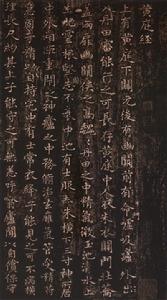 黄庭經
上有黄庭下關元後有幽闕前有命噓吸廬外出
入丹田審能行之可長存黄庭中人衣朱衣關門壯籥
蓋兩扉幽闕俠之高巍丹田之中精氣微玉池清水上
生肥靈根堅志不衰中池有士服赤朱横下三寸神所居
中外相距重閉之神廬之中務脩治玄雍氣管受精符
急固子精以自持宅中有士常衣絳子能見之可不病横
理長尺約其上子能守之可無恙呼噏廬間以自償保守